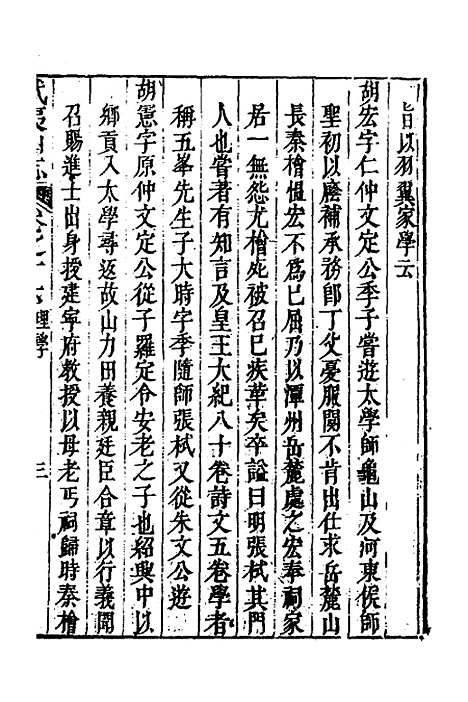 旨以羽翼家學云
胡宏字仁仲文定公季子嘗遊太學師龜山及河東侯師
聖初以廕補承務郎丁父憂服闋不肯出仕求岳麓山
長秦檜慍宏不爲已屈乃以潭州岳麓處之宏奉祠家
居一無怨尤檜死被召已疾革矣卒謚曰明張栻其門
人也嘗著有知言及皇王大紀八十卷詩文五卷學者
稱五峯先生子大時字季隨師張栻又從朱文公遊
胡憲字原仲文定公從子羅定令安老之子也紹興中以
鄉貢入太學尋返故山力田養親廷臣合章以行義聞
召賜進士出身授建寧府教授以母老丐祠歸時秦檜
武夷山志 卷之十六 理學 三